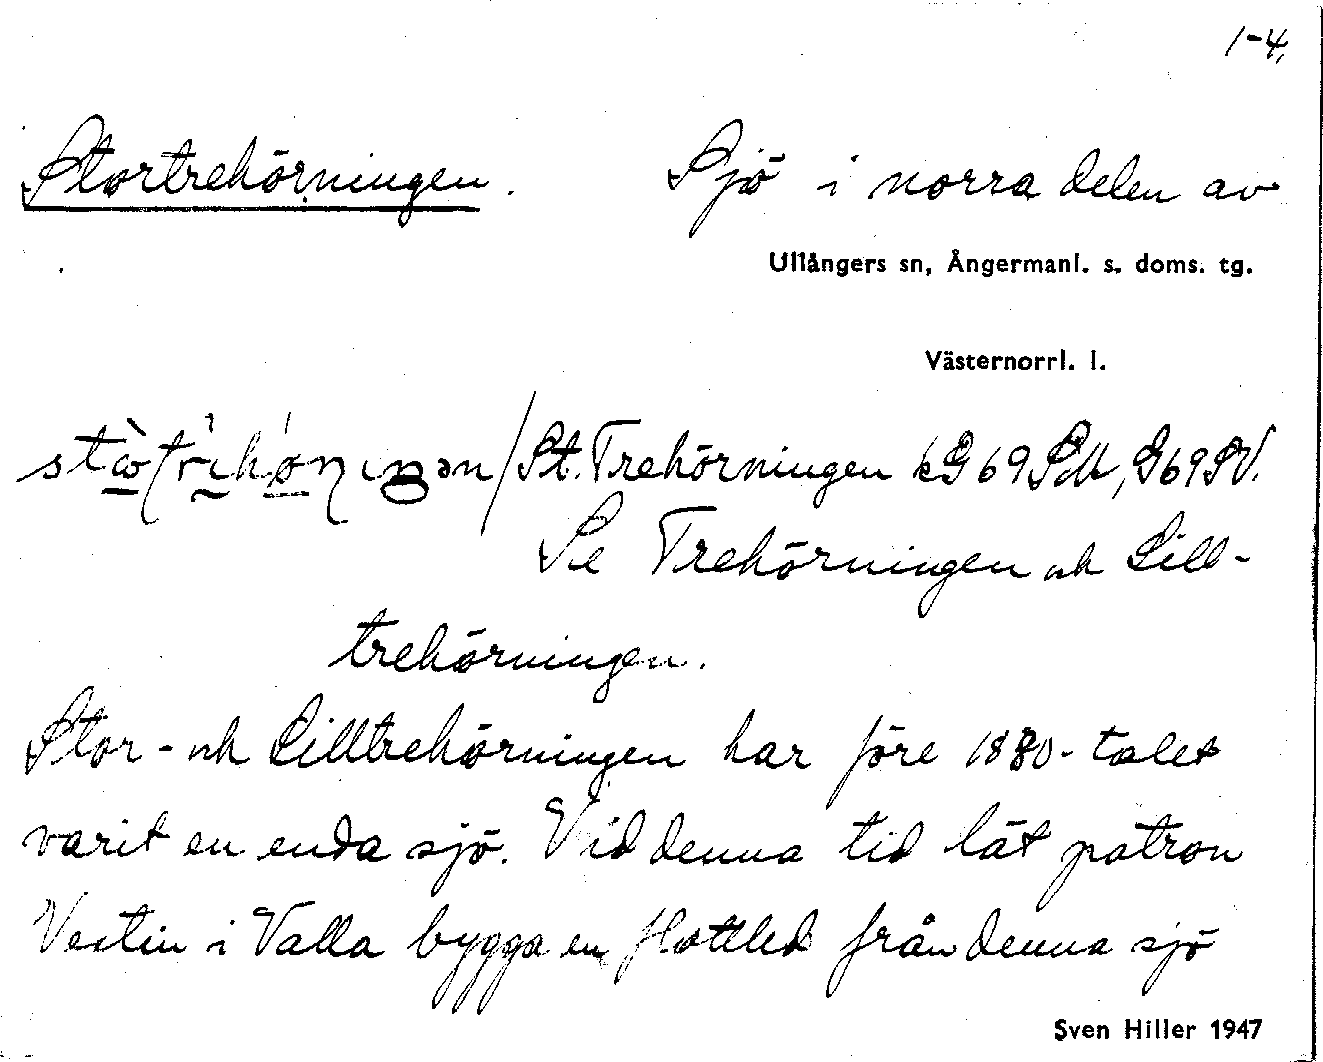 1-4.
Stortrehörningen. Sjö i norra delen av
Ullångers sn, Ångermanl. s. doms. tg.
Västernorrl. l.
St. Trehörningen kG69SM, G69SV.
Se Trehörningen och Lill-
trehörningen.
Stor- och Lilltrehörningen har före 1880-talet
varit en enda sjö. Vid denna tid lät patron
Vestin i Valla bygga en flottled från denna sjö
Sven Hiller 1947